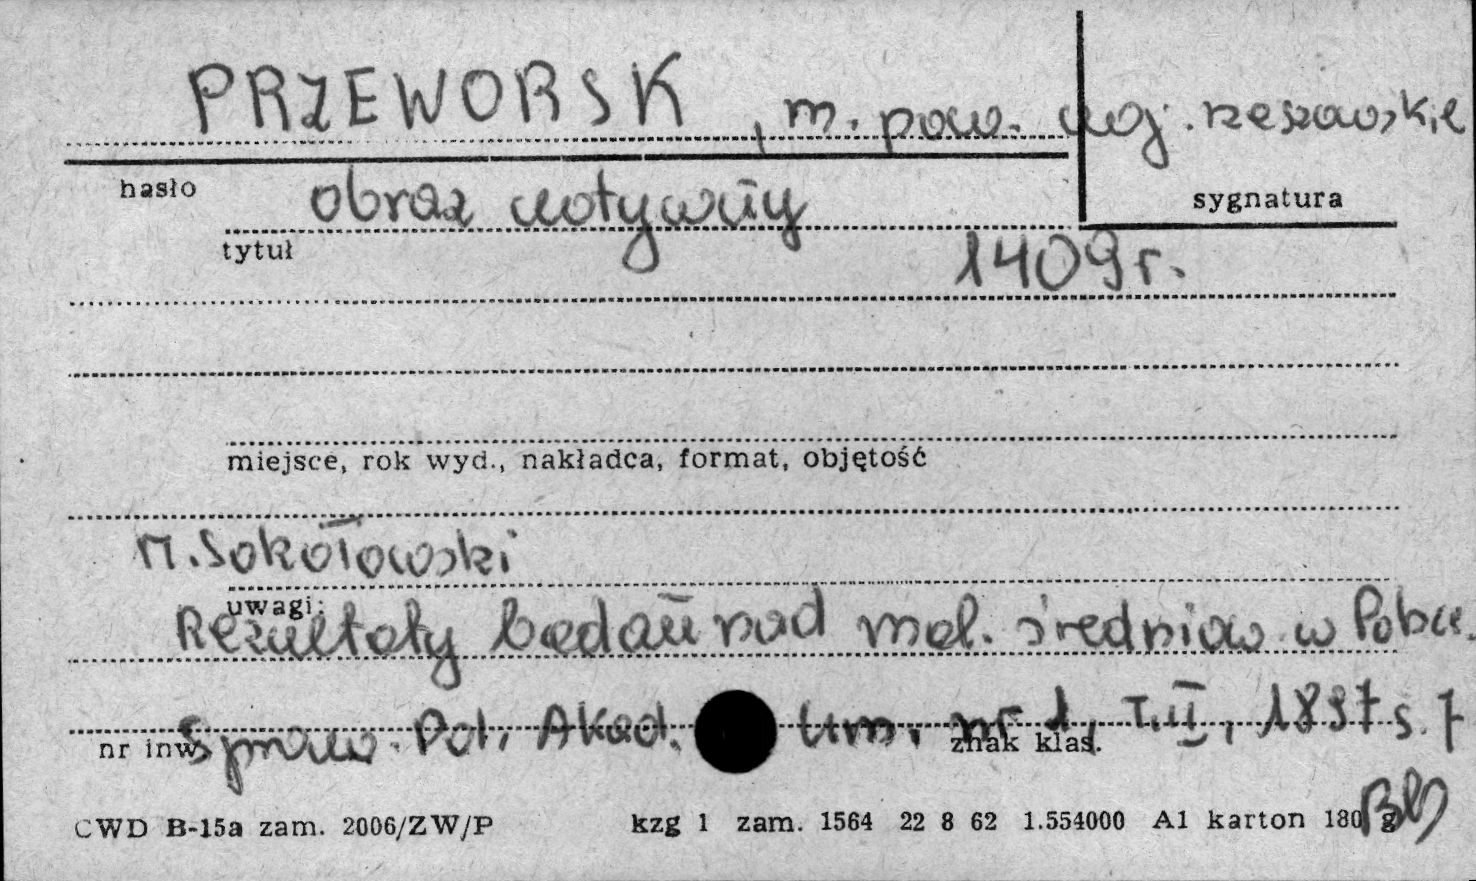 PRZEWORSK, m. pow. woj. rzeszowskie
hasło
obraz wotywny
sygnatura
tytuł
1409 r.
miejsce, rok wyd., nakładca, format, objętość
M. Sokołowski
uwagi:
Rezultaty badań nad mal. średniow. w Polsce.
Spraw. Pol. Akad. Um. nr 1, T. II, 1897 s. 7
nr inw. znak klas.
CWD B-15a zam. 2006/ZW/P kzg 1 zam. 1564 22 8 62 1.554000 A1 karton 180 g